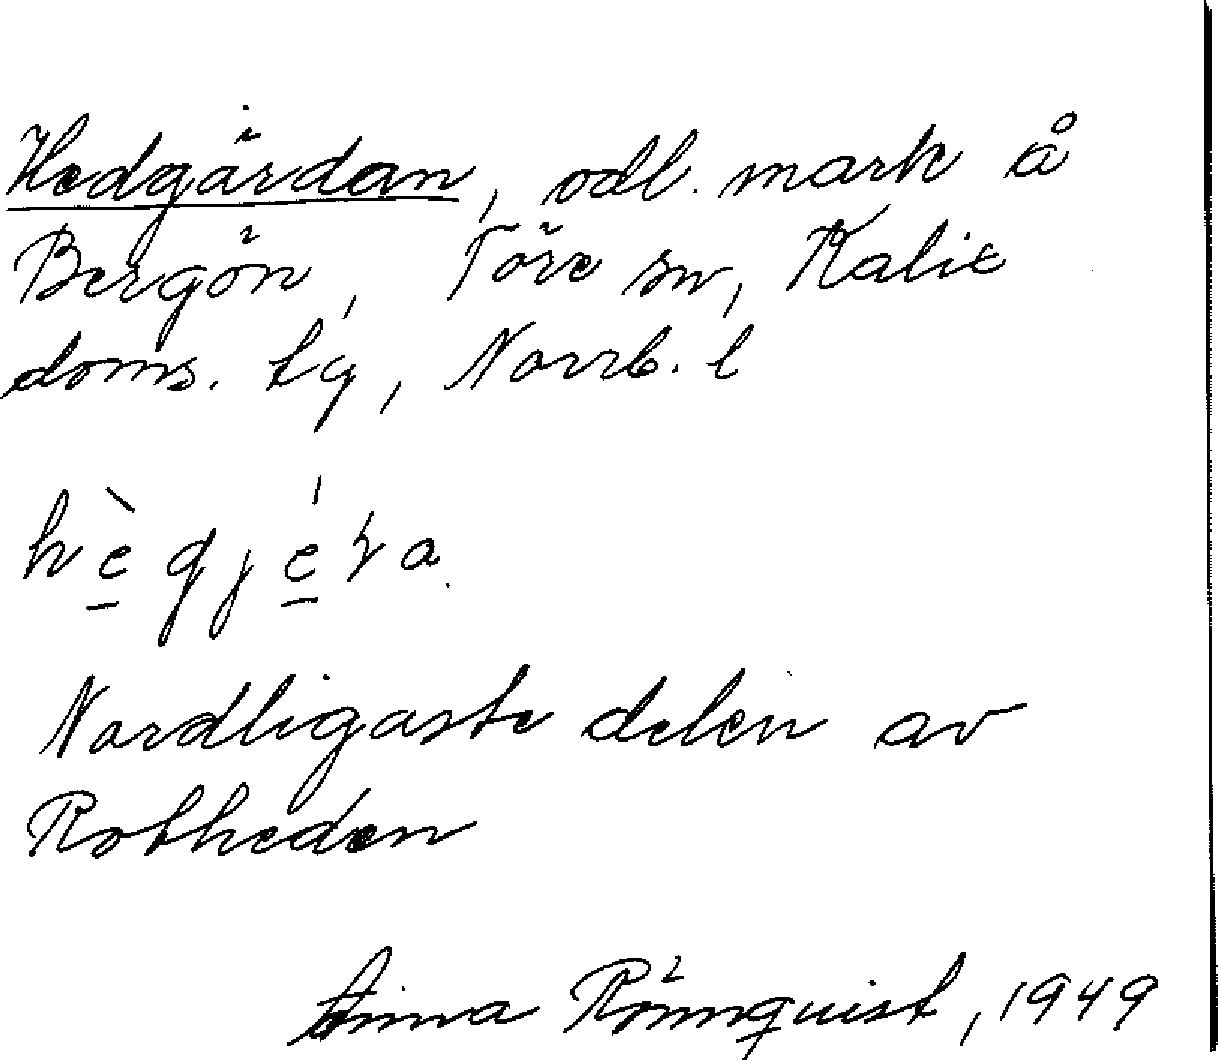 Hedgärdan, odl. mark å
Bergön, Töre sn, Kalix
doms. tg, Norrb. l
Nordligaste delen av
Rotheden
Anna Rönnquist, 1949